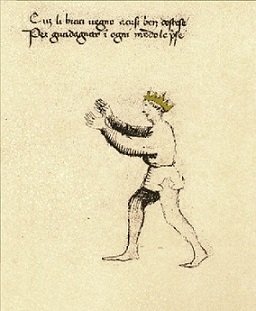 Cuz li braci uegno cosi ben destese
Per guadagnar i ogni modo le pse